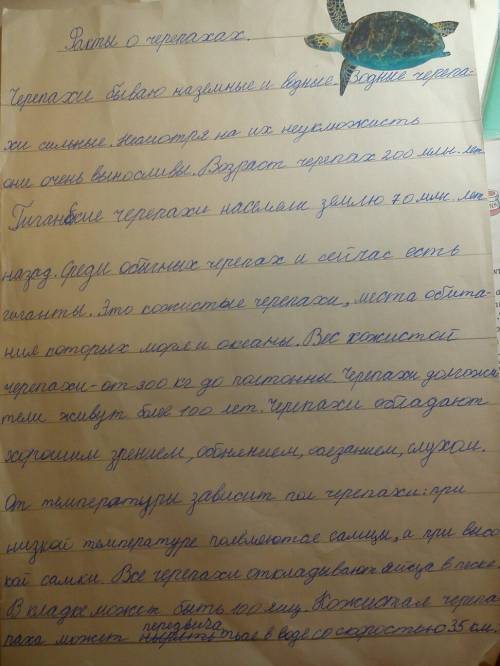 Факты о черепахах.
Черепахи бываю наземные и водные. Водные черепа-
хи сильные. Несмотря на их неуклюжисть
они очень выносливы. Возраст черепах 200 млн. лет
Гиганские черепахи населяли землю 70 млн. лет
назад. Среди обычных черепах и сейчас есть
гиганты. Это кожистые черепахи, места обита-
ния которых моря и океаны. Вес кожистой
черепахи - от 300 кг до полтонны. Черепахи долгожи
тели живут более 100 лет. Черепахи обладают
хорошим зрением, обонянием, осезанием, слухом.
От температуры зависит пол черепахи: при
низкой температуре появляются самцы, а при высо
кой самки. Все черепахи откладывают яйца в песке.
В кладке может быть 100 яиц. Кожистая черепа
передвига
паха может ться в воде со скоростью 35 см.